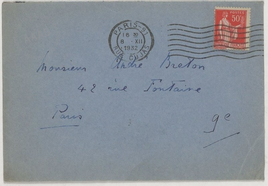 PARIS
1932
50c
Monsieur André Breton
42 rue Fontaine
Paris 9e